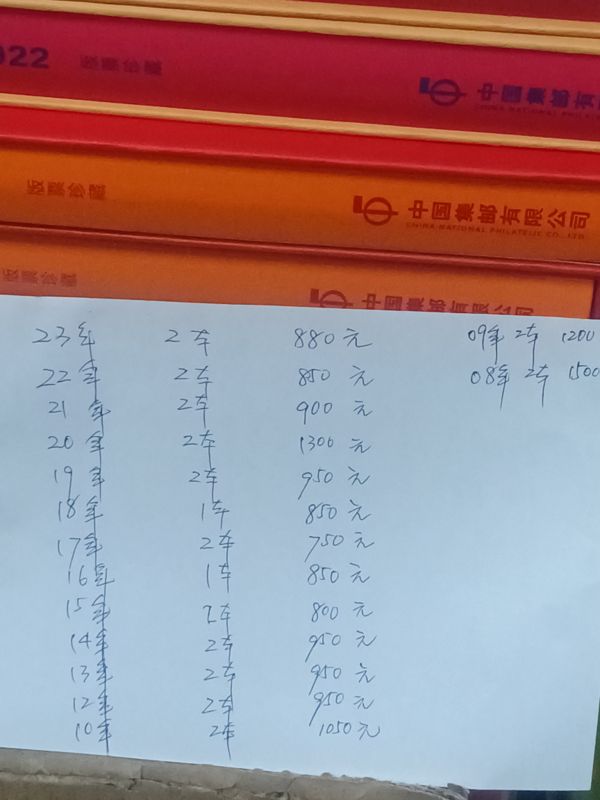 2022 版票珍藏 中国集邮有限公司
版票珍藏 中国集邮有限公司
CHINA NATIONAL PHILATELIC CO., LTD.
版票珍藏 中国集邮有限公司
23年 2本 880元
22年 2本 850元
21年 2本 900元
20年 2本 1300元
19年 2本 950元
18年 1本 850元
17年 2本 750元
16年 1本 850元
15年 2本 800元
14年 2本 950元
13年 2本 950元
12年 2本 950元
10年 2本 1050元
09年 2本 1200
08年 2本 1500